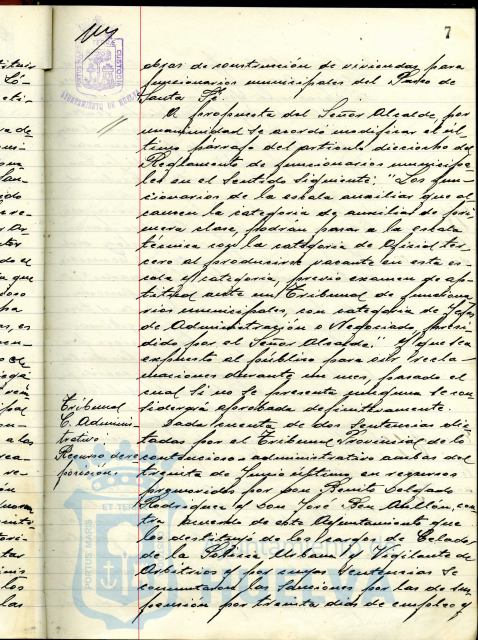 7
obras de construcción de viviendas para
funcionarios municipales del Paseo de
Santa Fé
A propuesta del Señor Alcalde, por
unanimidad se acordó modificar el úl-
timo párrafo del artículo dieciocho del
Reglamento de funcionarios municipa-
les en el sentido siguiente: "Los fun-
cionarios de la escala auxiliar que al-
cancen la categoría de auxiliar de pri-
mera clase, podrán pasar a la escala
técnica con la categoría de Oficial ter-
cero al producirse vacante en esta es-
cala y categoría, previo examen de ap-
titud ante un Tribunal de funciona-
rios municipales, con categoría de Jefes
de Administración o Negociado, presi-
dido por el Señor Alcalde." Y que sea
expuesto al público para oir recla-
maciones durante un mes, pasado el
cual si no se presenta ninguna se con-
siderará aprobada definitivamente.
Tribunal
C. Adminis-
trativo.
Recurso de re
posición.
Dada cuenta de dos Sentencias dic-
tadas por el Tribunal Provincial de lo
contencioso administrativo ambas del
treinta de Junio último, en recursos
promovidos por Don Benito Delgado
Rodriguez y Don José
contra acuerdo de este Ayuntamiento que
los destituyó de los cargos de Celador
de la Policía Urbana y Vigilante de
Arbitrios y por cuyas Sentencias se
conmutaron las sanciones por las de sus-
pensión por treinta días de empleo y
AYUNTAMIENTO DE HUELVA
PORTUS MARIS ET TERRAE CUSTODIA
Ayuntamiento de
HUELVA